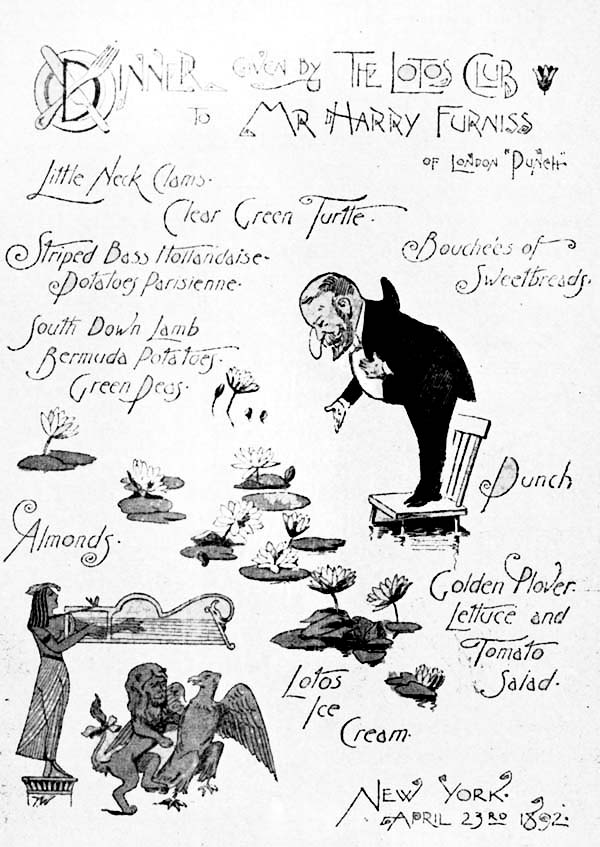 DINNER GIVEN BY THE LOTOS CLUB
TO MR HARRY FURNISS
OF LONDON "PUNCH"
Little Neck Clams.
Clear Green Turtle.
Striped Bass Hollandaise-
Potatoes Parisienne.
Bouchées of
Sweetbreads.
South Down Lamb
Bermuda Potatoes.
Green Peas.
Punch
Almonds.
Golden Plover.
Lettuce and
Tomato
Salad.
Lotos
Ice
Cream.
NEW YORK.
APRIL 23RD 1892.